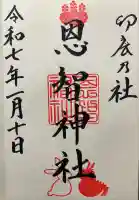 卯辰乃社
恩智神社
令和七年一月十日